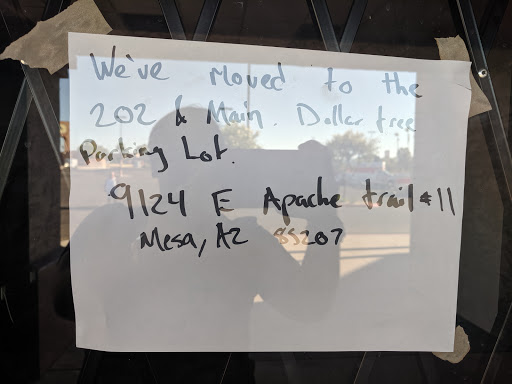 We've moved to the
202 & Main. Dollar tree
Parking Lot.
9124 E Apache trail #11
Mesa, AZ 85207